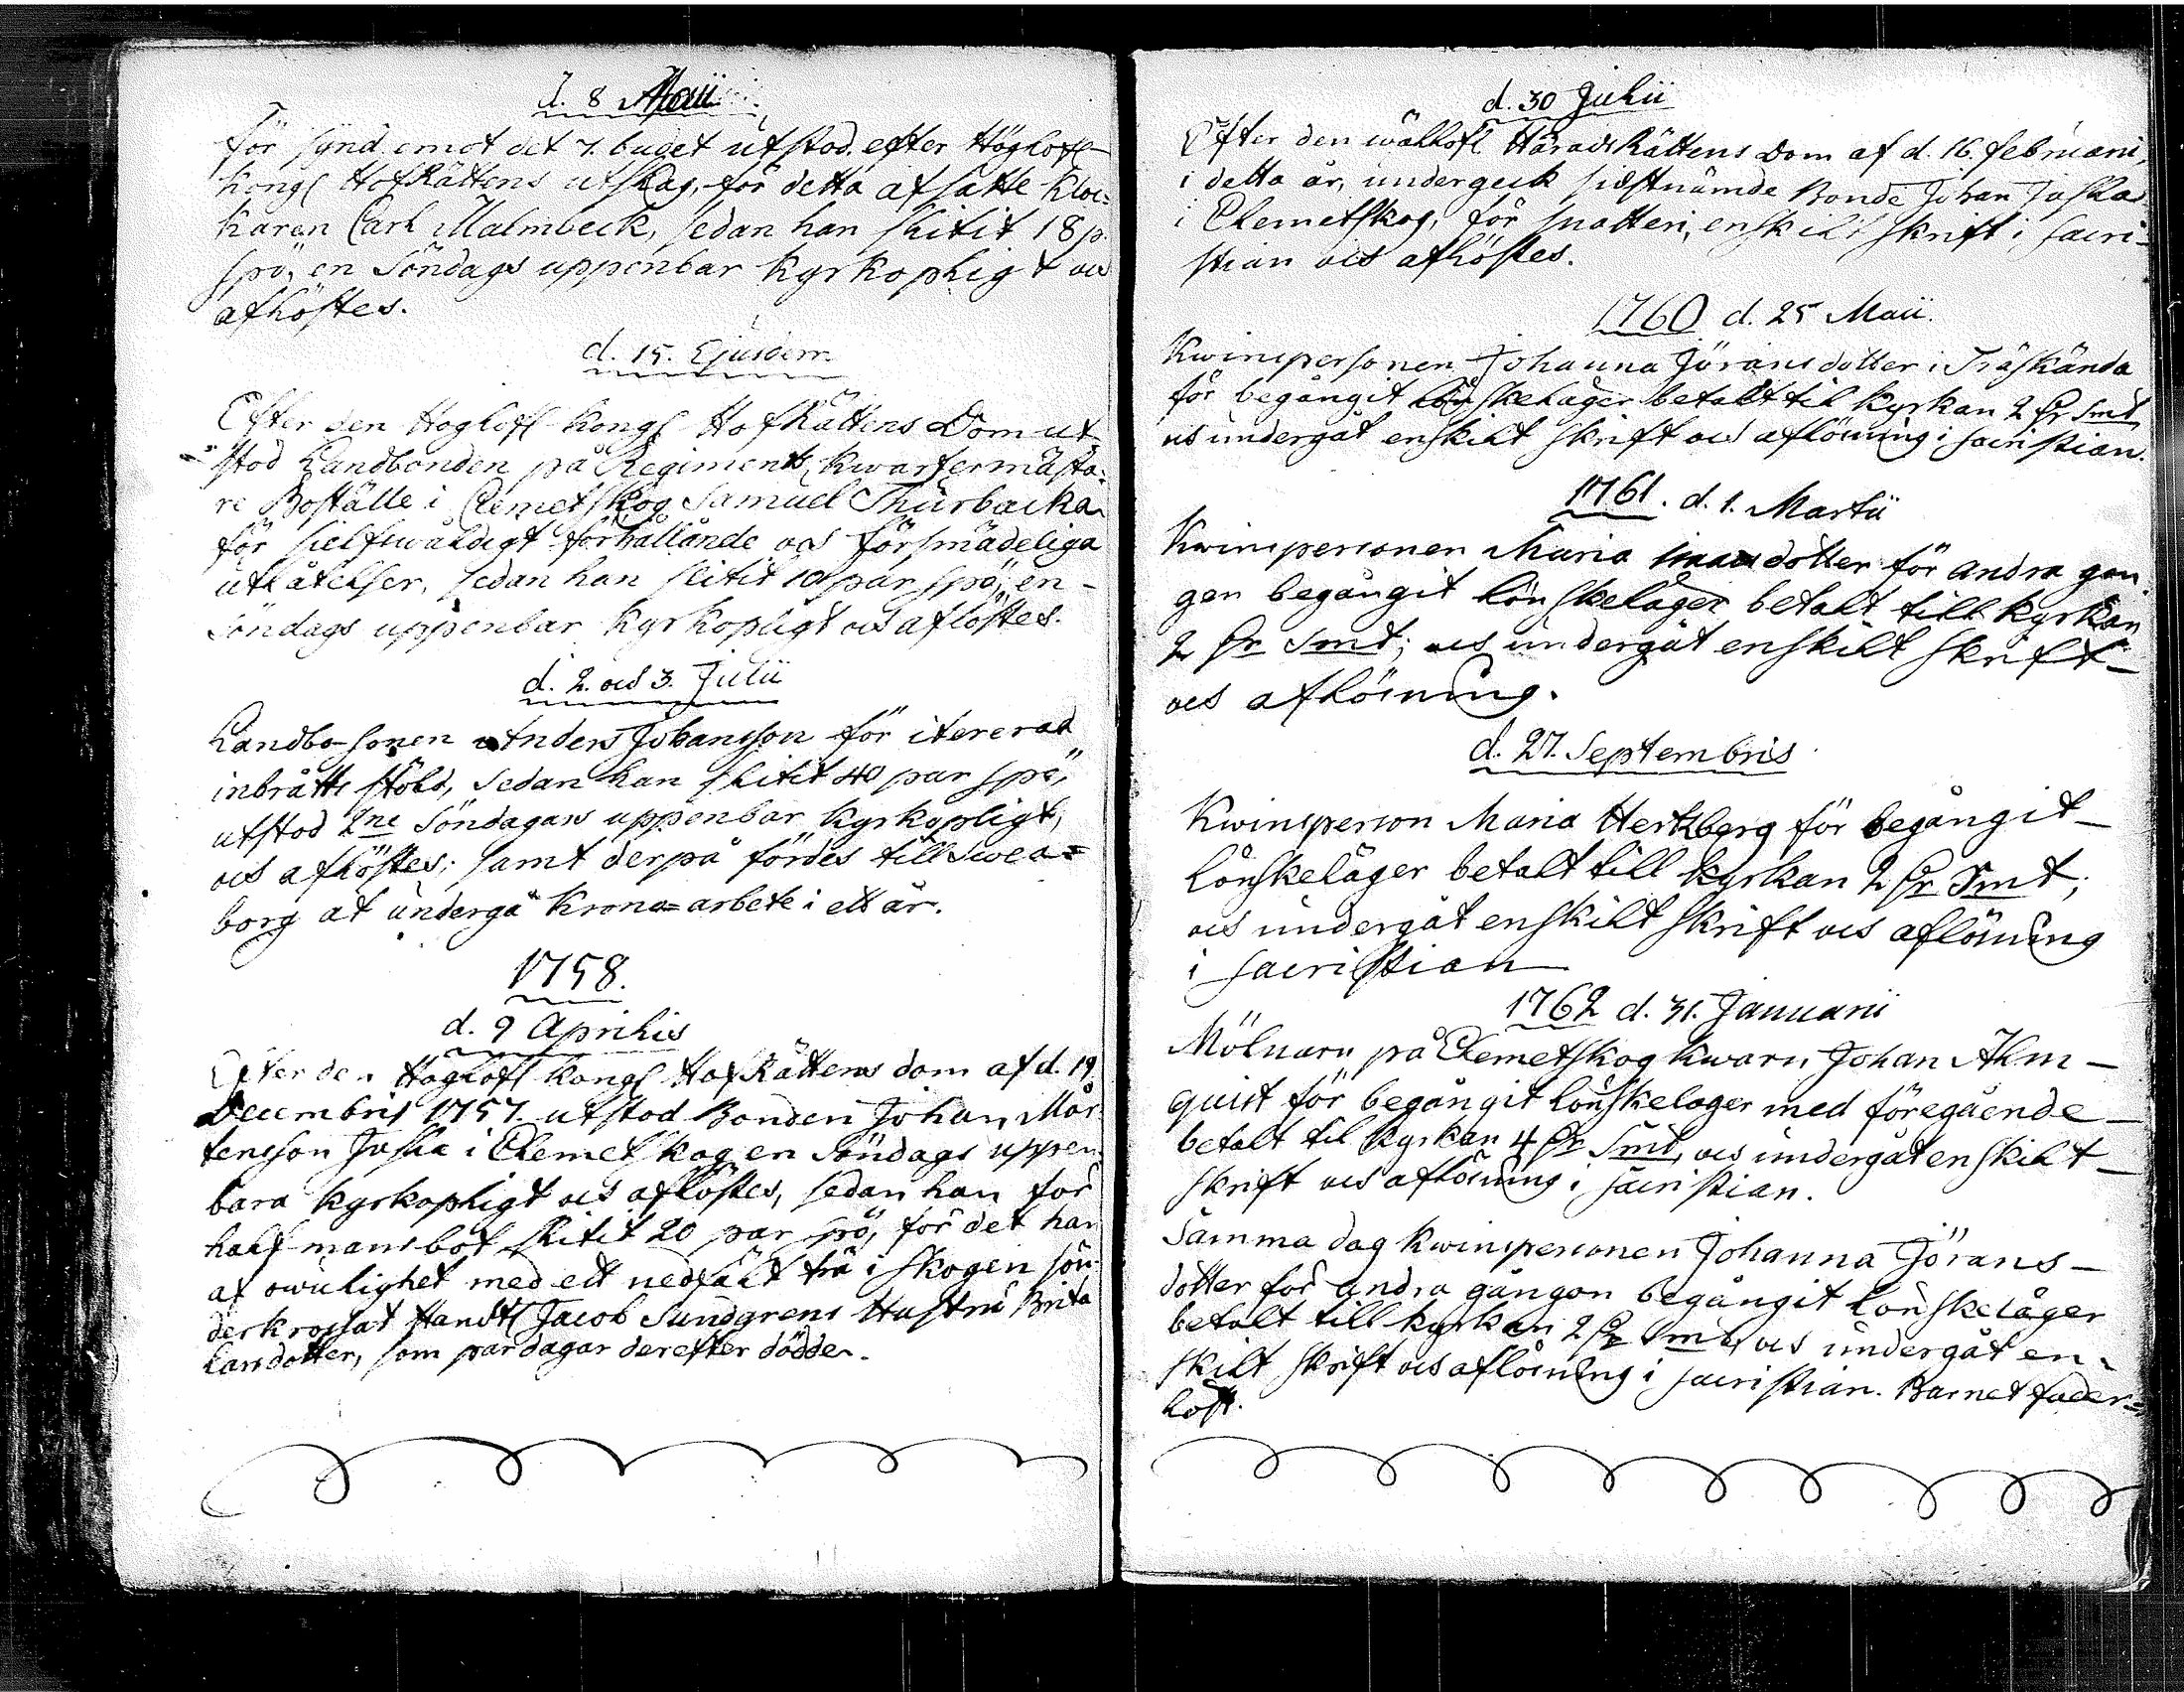 d. 8 Maii
för synd emot det 7. budet utstod efter Höglofl
kongl HofRättens utslag, för detta afsatte kloc=
karen Carl Malmbeck, sedan han slitit 18 p.
spö, en Söndags uppenbar kyrkopligt och
aflöstes.
d. 15. Ejusdem
Efter den Höglofl kongl HofRättens Dom ut
stod Landbonden på Regiments kwartermästa=
re Boställe i Clemetskog Samuel Thurbacka
för sielfswåldigt förhållande och försmädeliga
utlåtelser, sedan han slitit 10 par spö, en
Söndags uppenbar kyrkopligt och aflöstes.
d. 2. och 3. Julii
Landbo-sonen Anders Johansson för itererad
inbråtts stöld, sedan han slitit 40 par spö,
utstod 2ne Söndagars uppenbar kyrkopligt,
och aflöstes; samt derpå fördes till Swea=
borg at undergå Krono=arbete i ett år.
1758.
d. 9 Aprilis
Efter den Höglofl kongl HofRättens dom af d. 19
Decembris 1757. utstod Bonden Johan Mår
tensson Juska i Clemetskog en Söndags uppen
bara kyrkopligt och aflöstes, sedan han för
half mansbot slitit 20 par spö, för det han
af owulighet med ett nedfält trä i skogen sön
derkrossat Handtl Jacob Sundgrens Hustru Brita
Larsdotter, som par dagar derefter dödde.
d. 30 Julii
Efter den wällofl HäradsRättens Dom af d. 16. februarii,
i detta år, undergeck sidstnämde Bonde Johan Juska
i Clemetskog, för snatteri, enskilt skrift i sacri-
stian och aflöstes.
1760 d. 25 Maii.
Kwinspersonen Johanna Jöransdotter i Träskända
för begångit lönskeläger betalt til kyrkan 2 Plr Smt
och undergåt enskilt skrift och aflösning i sacristian.
1761. d. 1. Martii
Kwinspersonen Maria dotter för andra gån
gen begångit lönskeläger betalt till kyrkan
2 Plr Smt; och undergåt enskilt skrift
och aflösning.
d. 27. Septembris
Kwinsperson Maria Hertzberg för begångit
lönskeläger betalt till kyrkan 2 Plr Smt;
och undergåt enskilt skrift och aflösning
i sacristian
1762 d. 31. Januarii
Mölnarn på Clemetskog kwarn, Johan Alm-
quist för begångit lönskeläger med föregående
betalt til kyrkan 4 Plr Smt, och undergåt enskilt
skrift och aflösning i sacristian.
Samma dag kwinspersonen Johanna Jörans-
dotter för andra gången begångit lönskeläger
betalt till kyrkan 2 Plr Smt, och undergåt en=
skilt skrift och aflösning i sacristian. Barnet fader=
löst.